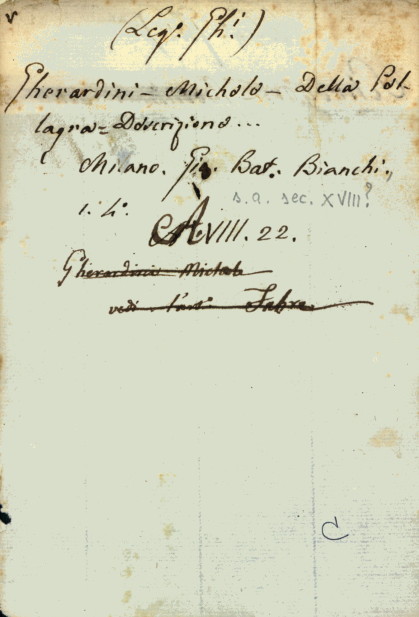 (Leg. Ghi)
Gherardini - Michele - Della Pel-
lagra = Descrizione ...
Milano. Gio. Bat. Bianchi.,
s.a. sec. XVIII?
i. 4°.
A.VIII. 22.
Gherardini Michele
vedi l'art° Fabre.
C